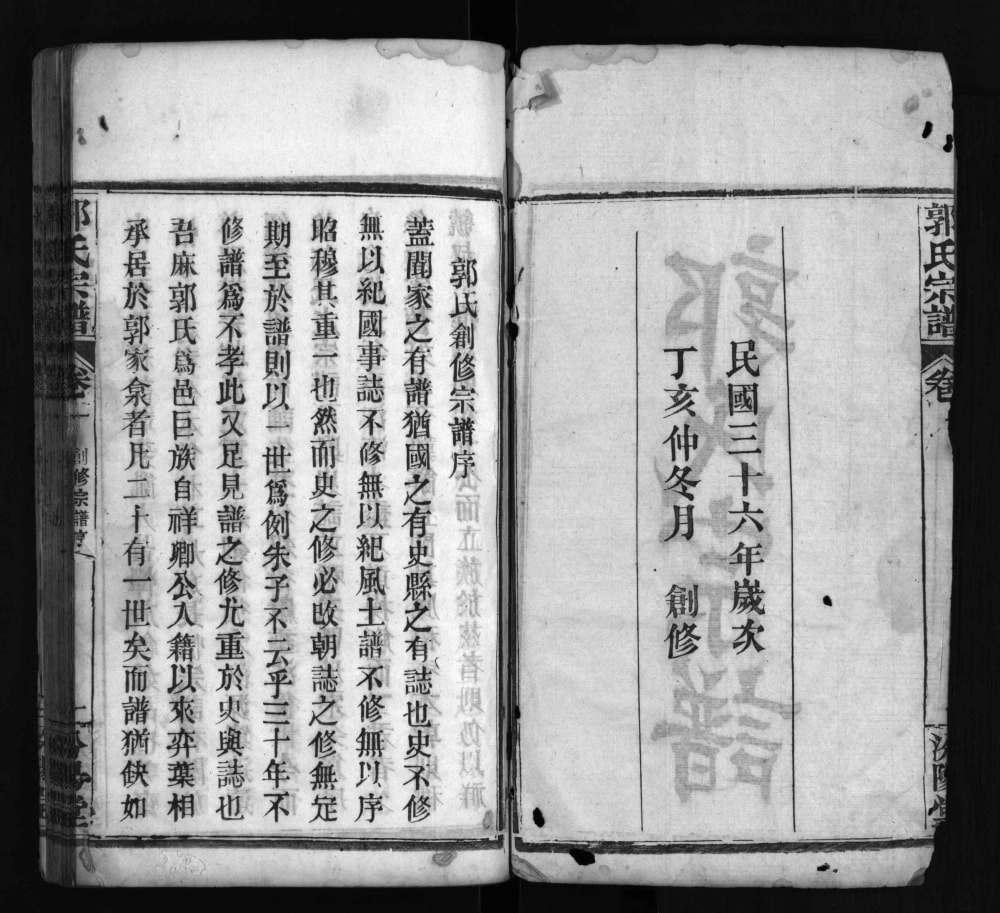 郭氏宗譜
卷
汾陽堂
民國三十六年歲次
丁亥仲冬月　創修
郭氏創修宗譜序
蓋聞家之有譜猶國之有史縣之有誌也史不修
無以紀國事誌不修無以紀風土譜不修無以序
昭穆其重一也然而史之修必改朝誌之修無定
期至於譜則以一世爲例朱子不云乎三十年不
修譜爲不孝此又足見譜之修尤重於史與誌也
吾麻郭氏爲邑巨族自祥卿公入籍以來弈葉相
承居於郭家泉者凡二十有一世矣而譜猶缺如
郭氏宗譜
卷一
創修宗譜序